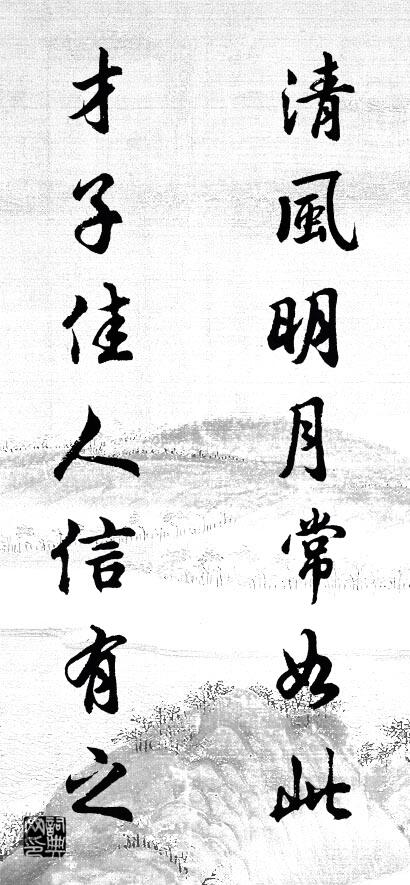 清風明月常如此
才子佳人信有之
詞典網印